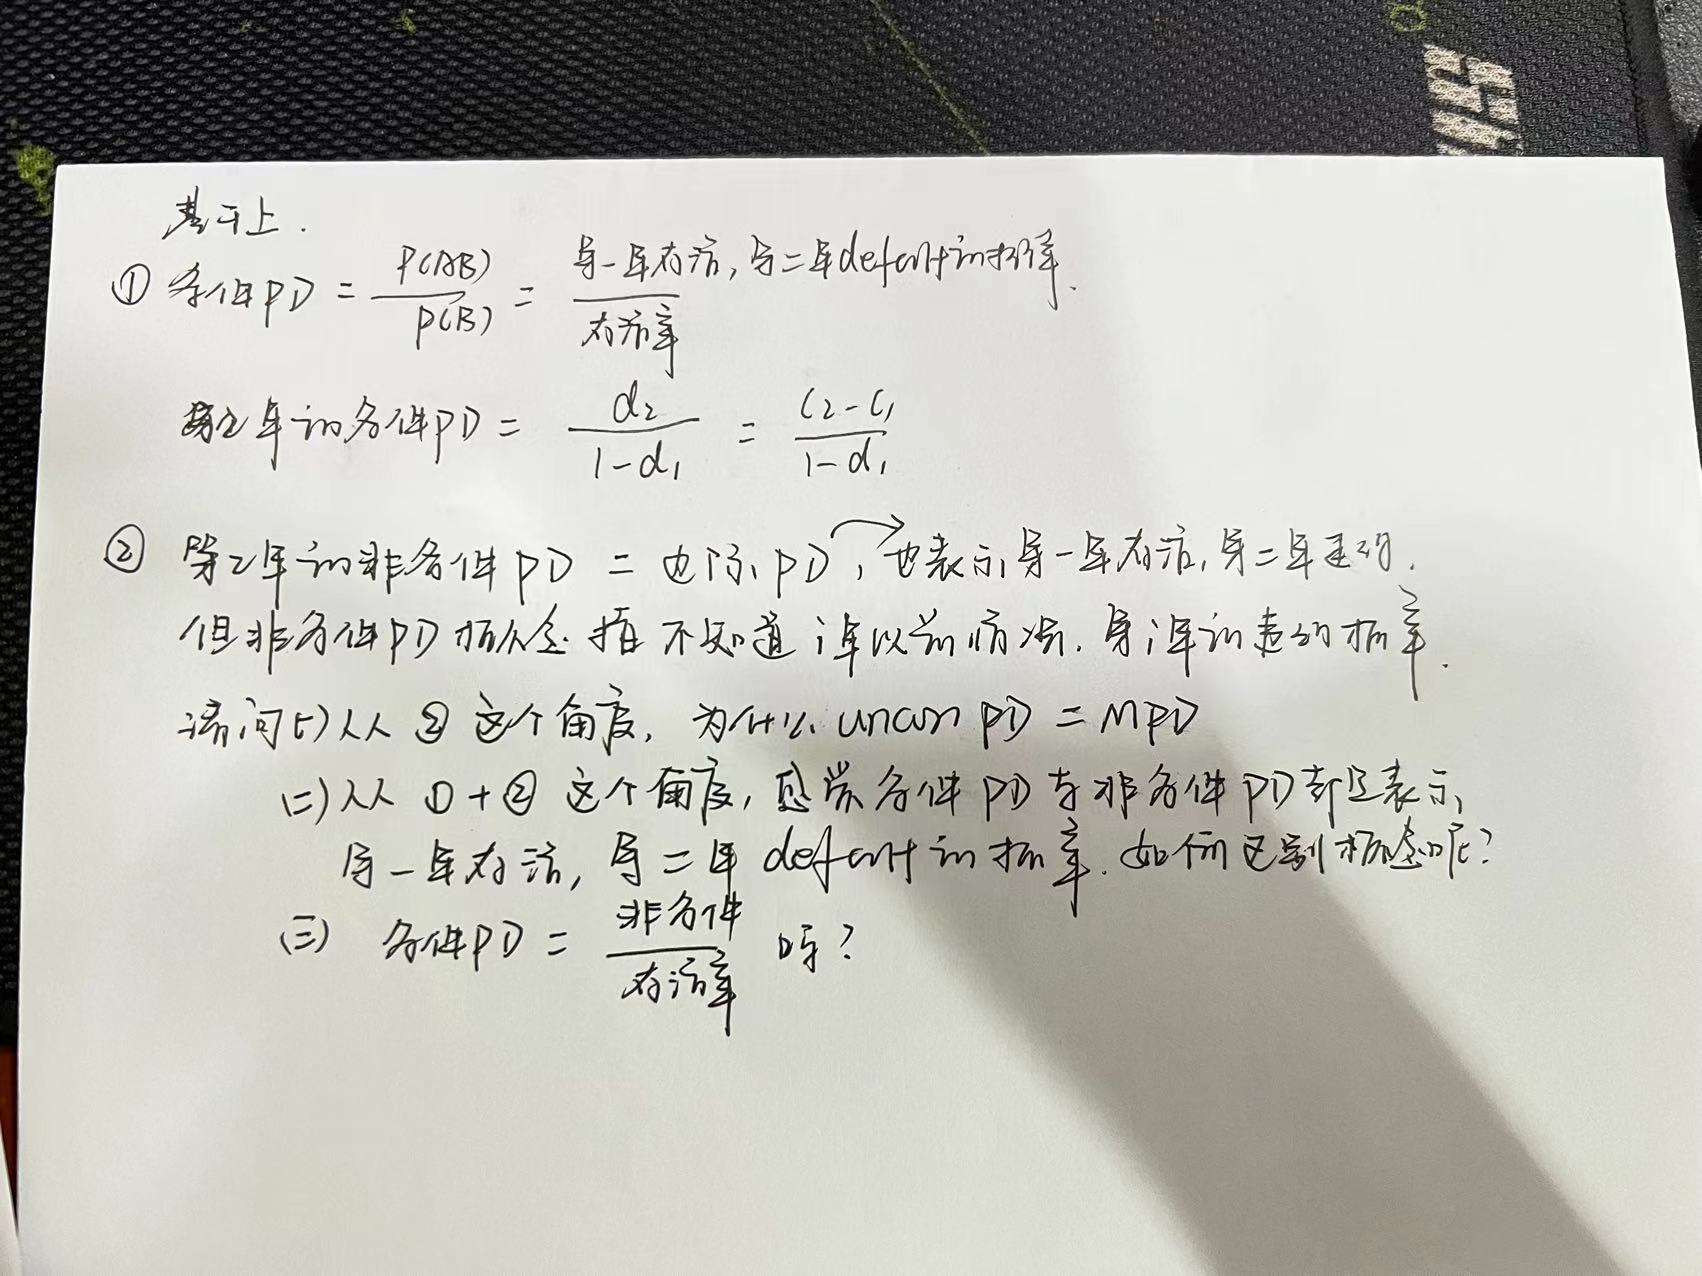 基于上.
① 条件PD = P(AB) / P(B) = 第一年存活, 第二年default的概率. / 存活率
第2年的条件PD = d₂ / 1-d₁ = C₂-C₁ / 1-d₁
② 第2年的非条件PD = 边际PD, 也表示第一年存活, 第二年违约.
但非条件PD概念指不知道i年以前情况. 第i年的违约概率.
请问(一)从②这个角度, 为什么 uncon PD = MPD
(二)从①+②这个角度, 感觉条件PD与非条件PD都是表示
第一年存活, 第二年default的概率. 如何区别概念呢?
(三) 条件PD = 非条件 / 存活率 吗?